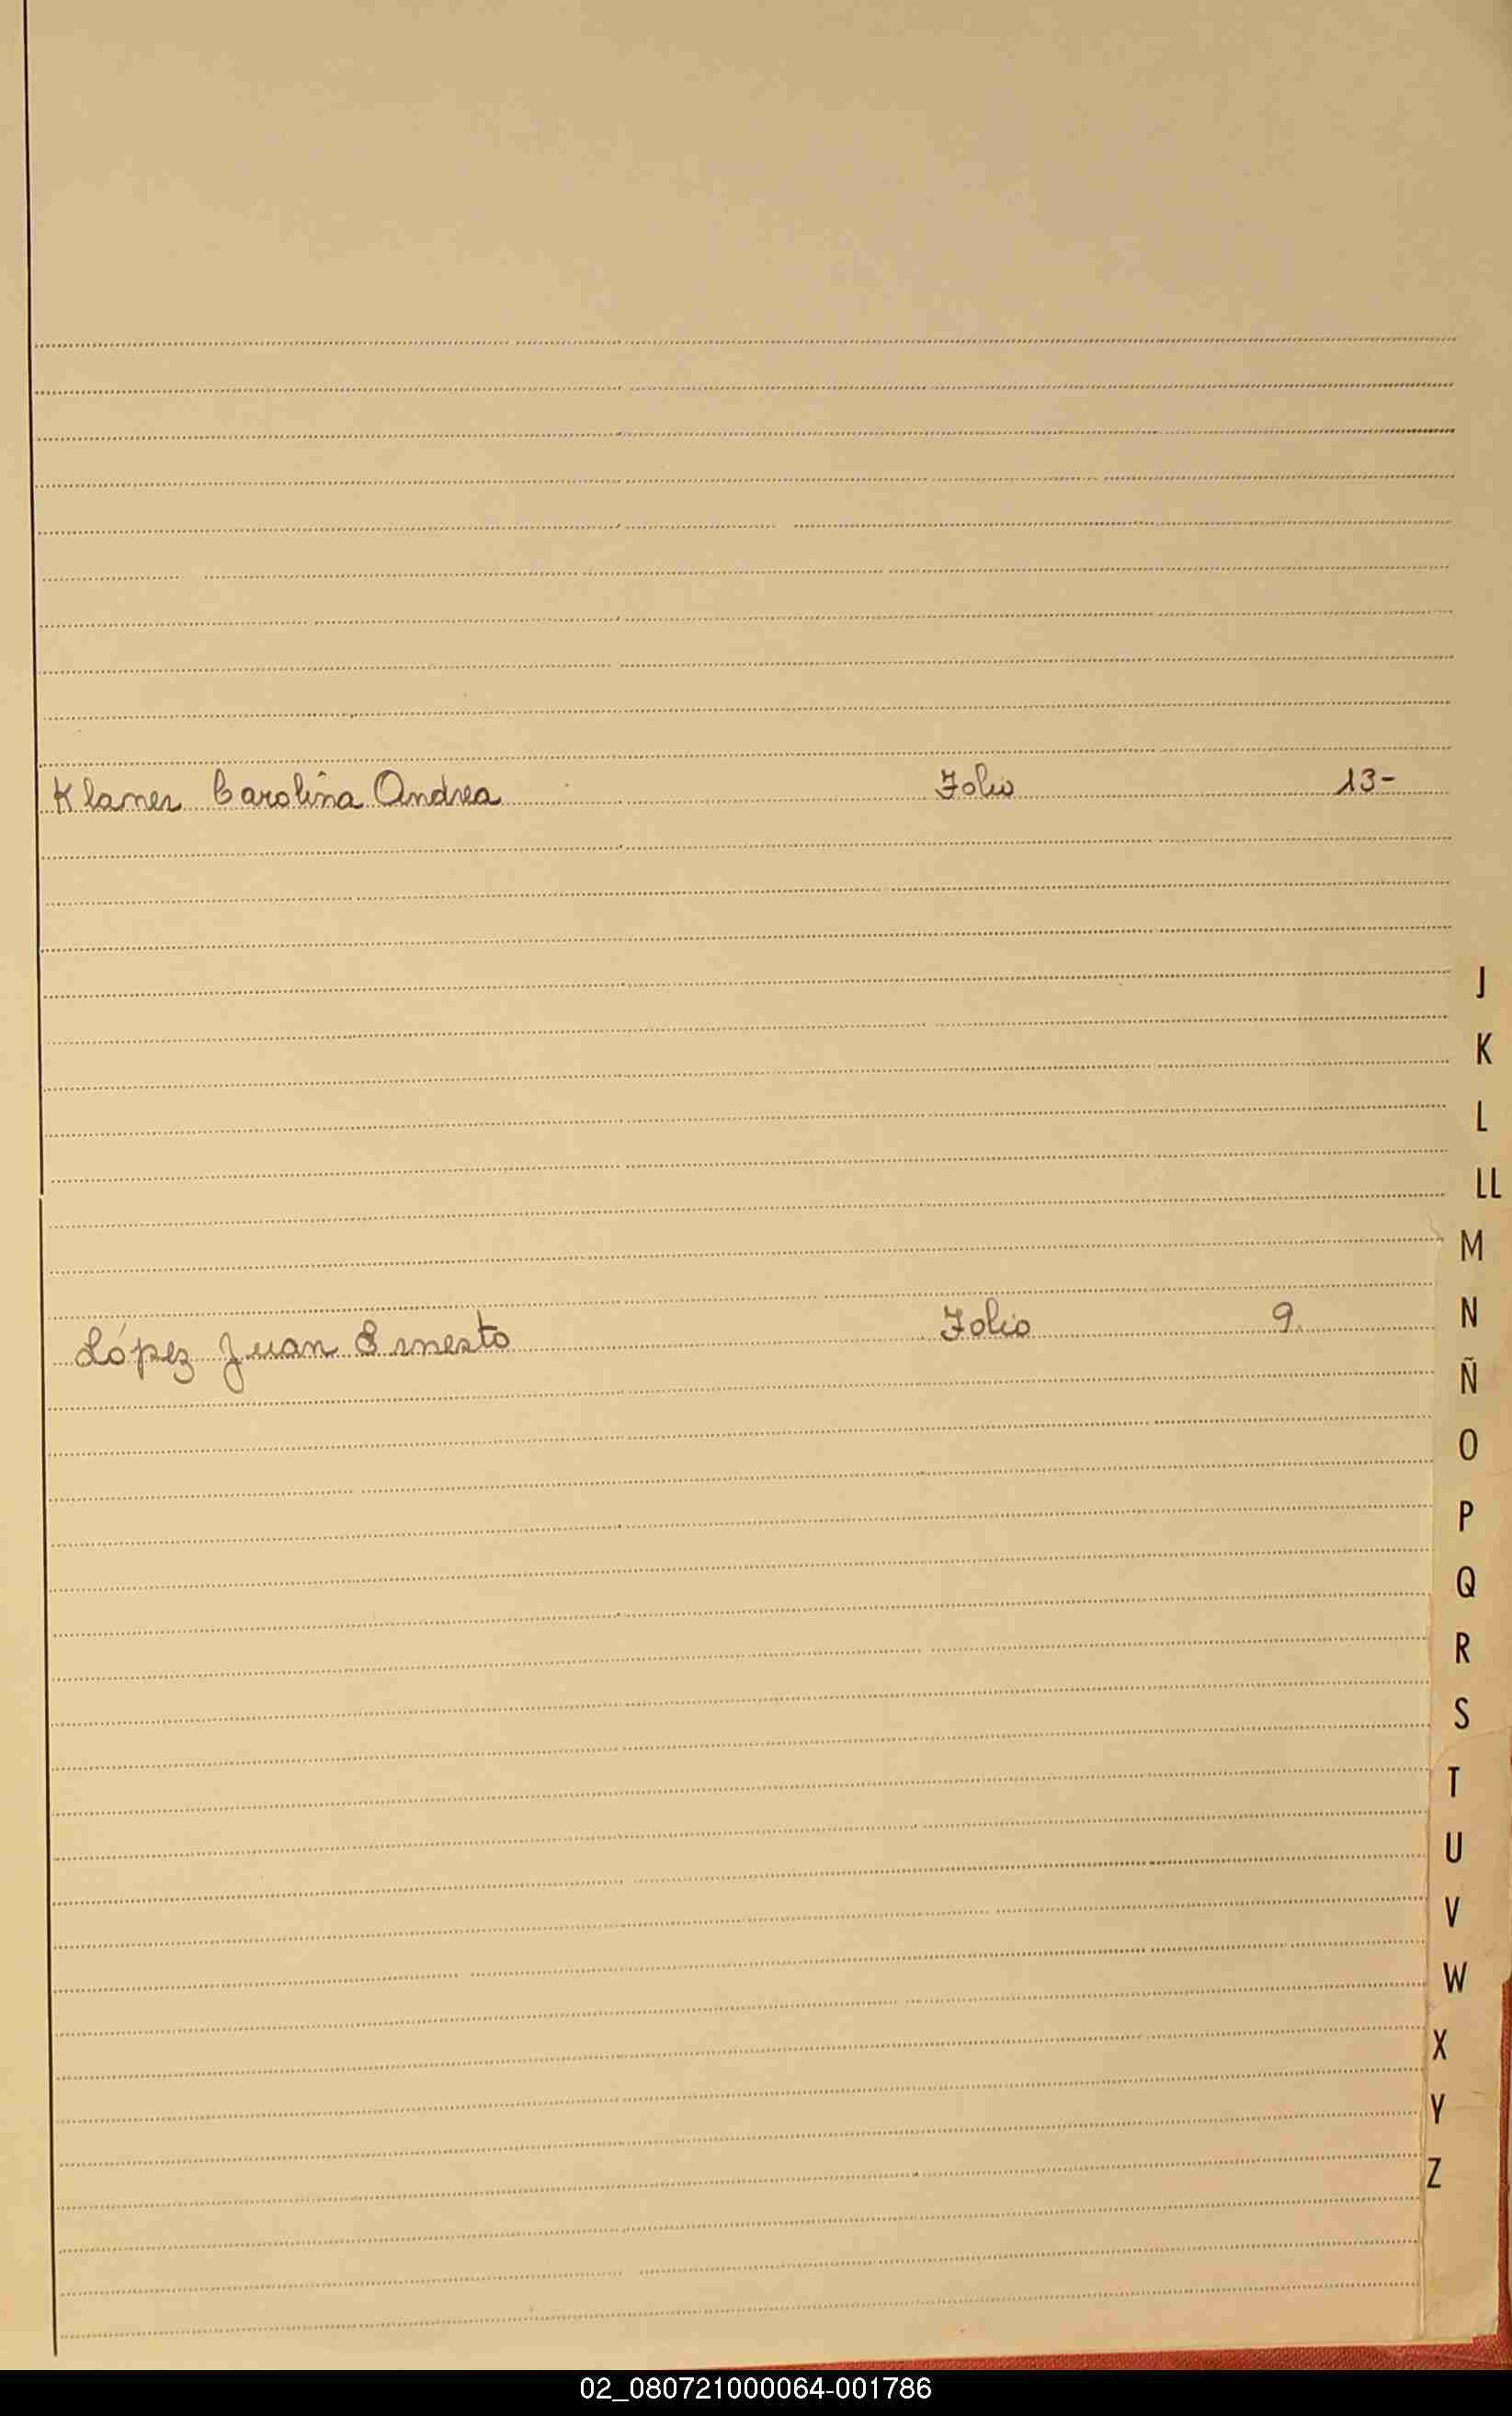 Klamer Carolina Andrea Folio 13-
J
K
L
LL
M
López Juan Ernesto Folio 9.
N
Ñ
O
P
Q
R
S
T
U
V
W
X
Y
Z
02_080721000064-001786